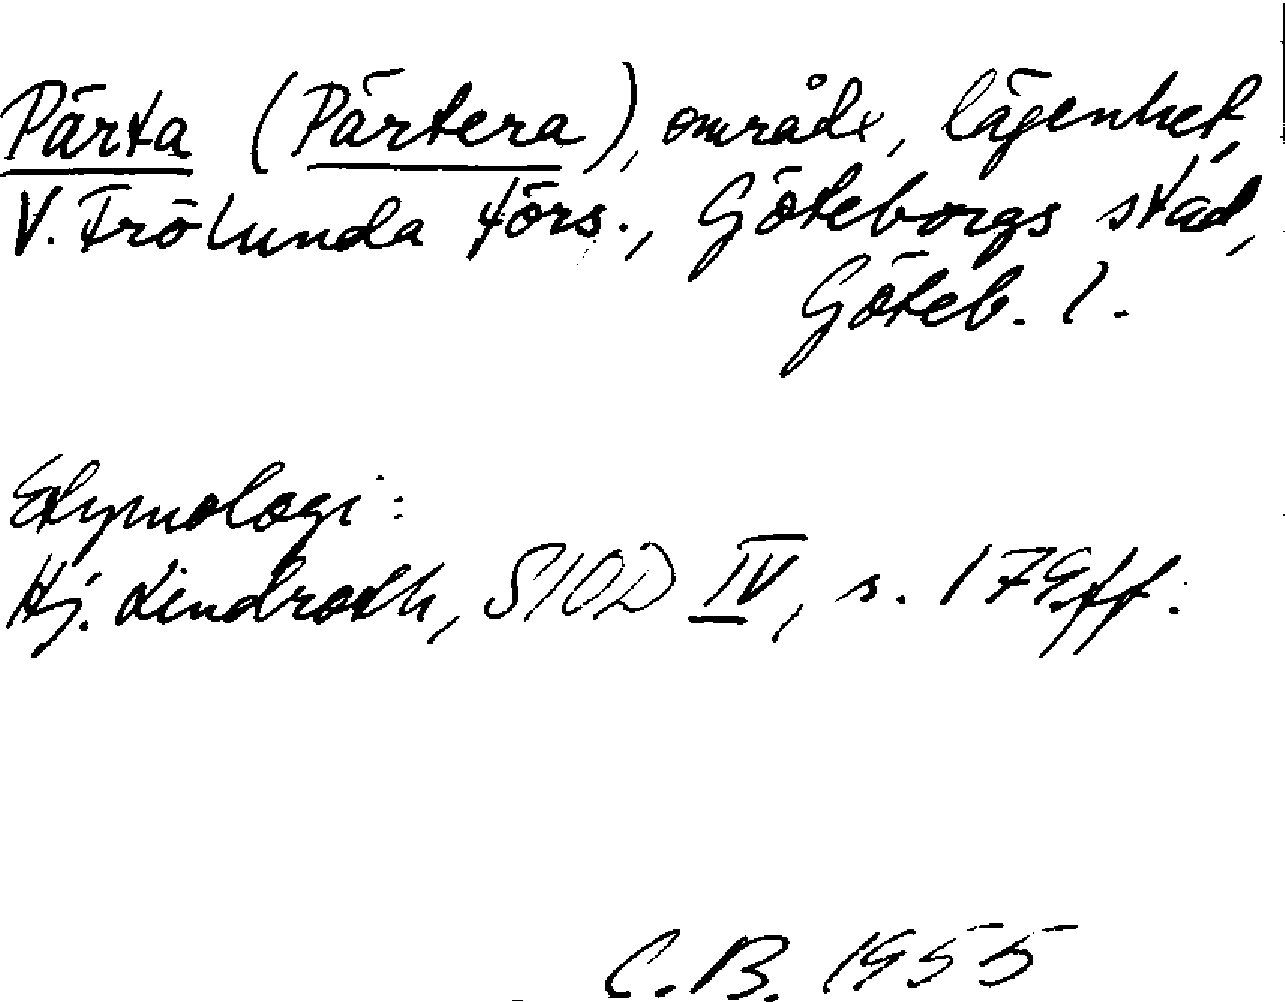 Pärta (Pärtera), område, lägenhet,
V. Frölunda förs., Göteborgs stad,
Göteb. l.
Etymologi:
Hj. Lindroth, SIOD IV, s. 179 ff.
C.B. 1955